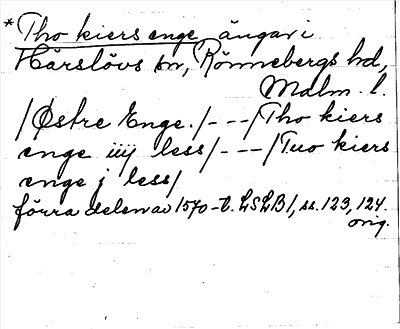 *Tho kiers enge, ängar i
Härslövs sn, Rönnebergs hd,
Malm. l.
/Østre Enge./---/Tho kiers
enge iiij less/---/Tuo kiers
enge j less/
förra delen av 1570-t. LSLB1, ss. 123, 124.
orig.